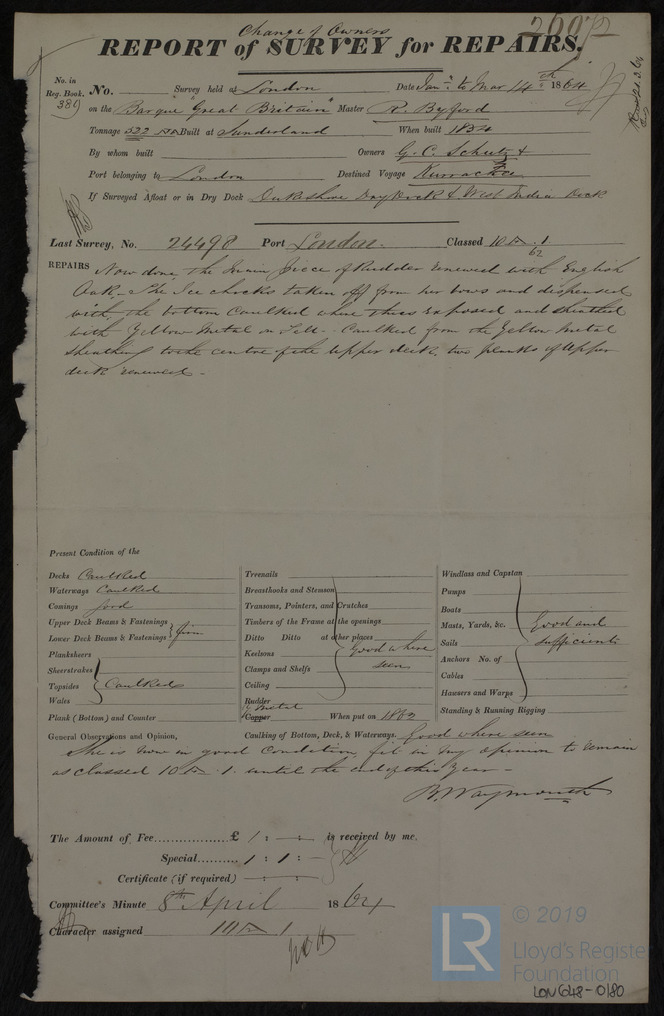 Change of Owners
REPORT of SURVEY for REPAIRS.
No. in
Reg. Book.
No. Survey held at London Date Jany. to Mar 14th 1864
on the Barque "Great Britain" Master R. Byford
Tonnage 522 Built at Sunderland When built 1834
By whom built Owners G. C. Schutz &
Port belonging to London Destined Voyage Kurrachee
If Surveyed Afloat or in Dry Dock Dukeshore Dry Dock & West India Dock
Last Survey, No. 24498 Port London. Classed 10 . 1
62
REPAIRS Now done, the Main Piece of Rudder renewed with English
Oak, The Ice chocks taken off from her bows and dispensed
with, the bottom Caulked where thus exposed and sheathed
with Yellow Metal on Felt. - Caulked from the Yellow Metal
Sheathing to the centre of the Upper deck, two planks of Upper
deck renewed -
Present Condition of the
Decks Caulked
Waterways Caulked
Comings Good
Upper Deck Beams & Fastenings
Lower Deck Beams & Fastenings Firm
Planksheers
Sheerstrakes
Topsides Caulked
Wales
Plank (Bottom) and Counter
Treenails
Breasthooks and Stemson
Transoms, Pointers, and Crutches
Timbers of the Frame at the openings
Ditto Ditto at other places
Keelsons Good where
Clamps and Shelfs seen
Ceiling
Rudder
Y Metal
Copper When put on 1862
Caulking of Bottom, Deck, & Waterways. Good where seen
Windlass and Capstan
Pumps
Boats
Masts, Yards, &c. Good and
Sails sufficient
Anchors No. of
Cables
Hausers and Warps
Standing & Running Rigging
General Observations and Opinion,
She is now in good condition, fit in my opinion to remain
as classed 10 . 1. until the end of this Year -
B. Waymouth
The Amount of Fee.................. £ 1 : - : - is received by me.
Special.......... 1 : 1 : -
Certificate (if required) - : - : -
Committee's Minute 8th April 1864
Character assigned 10 . 1
© 2019
LR
Lloyd's Register
Foundation
LON648-0180